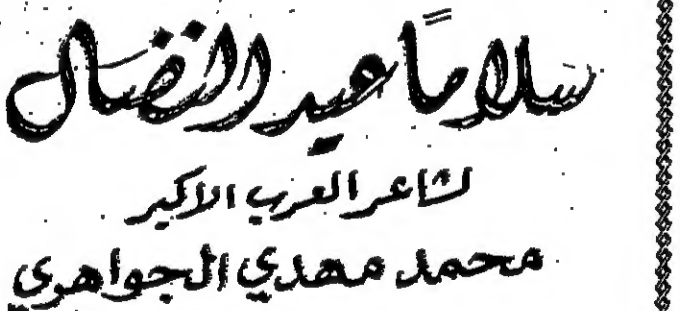 سلاماً عيد النضال
لشاعر العرب الاكبر
محمد مهدي الجواهري